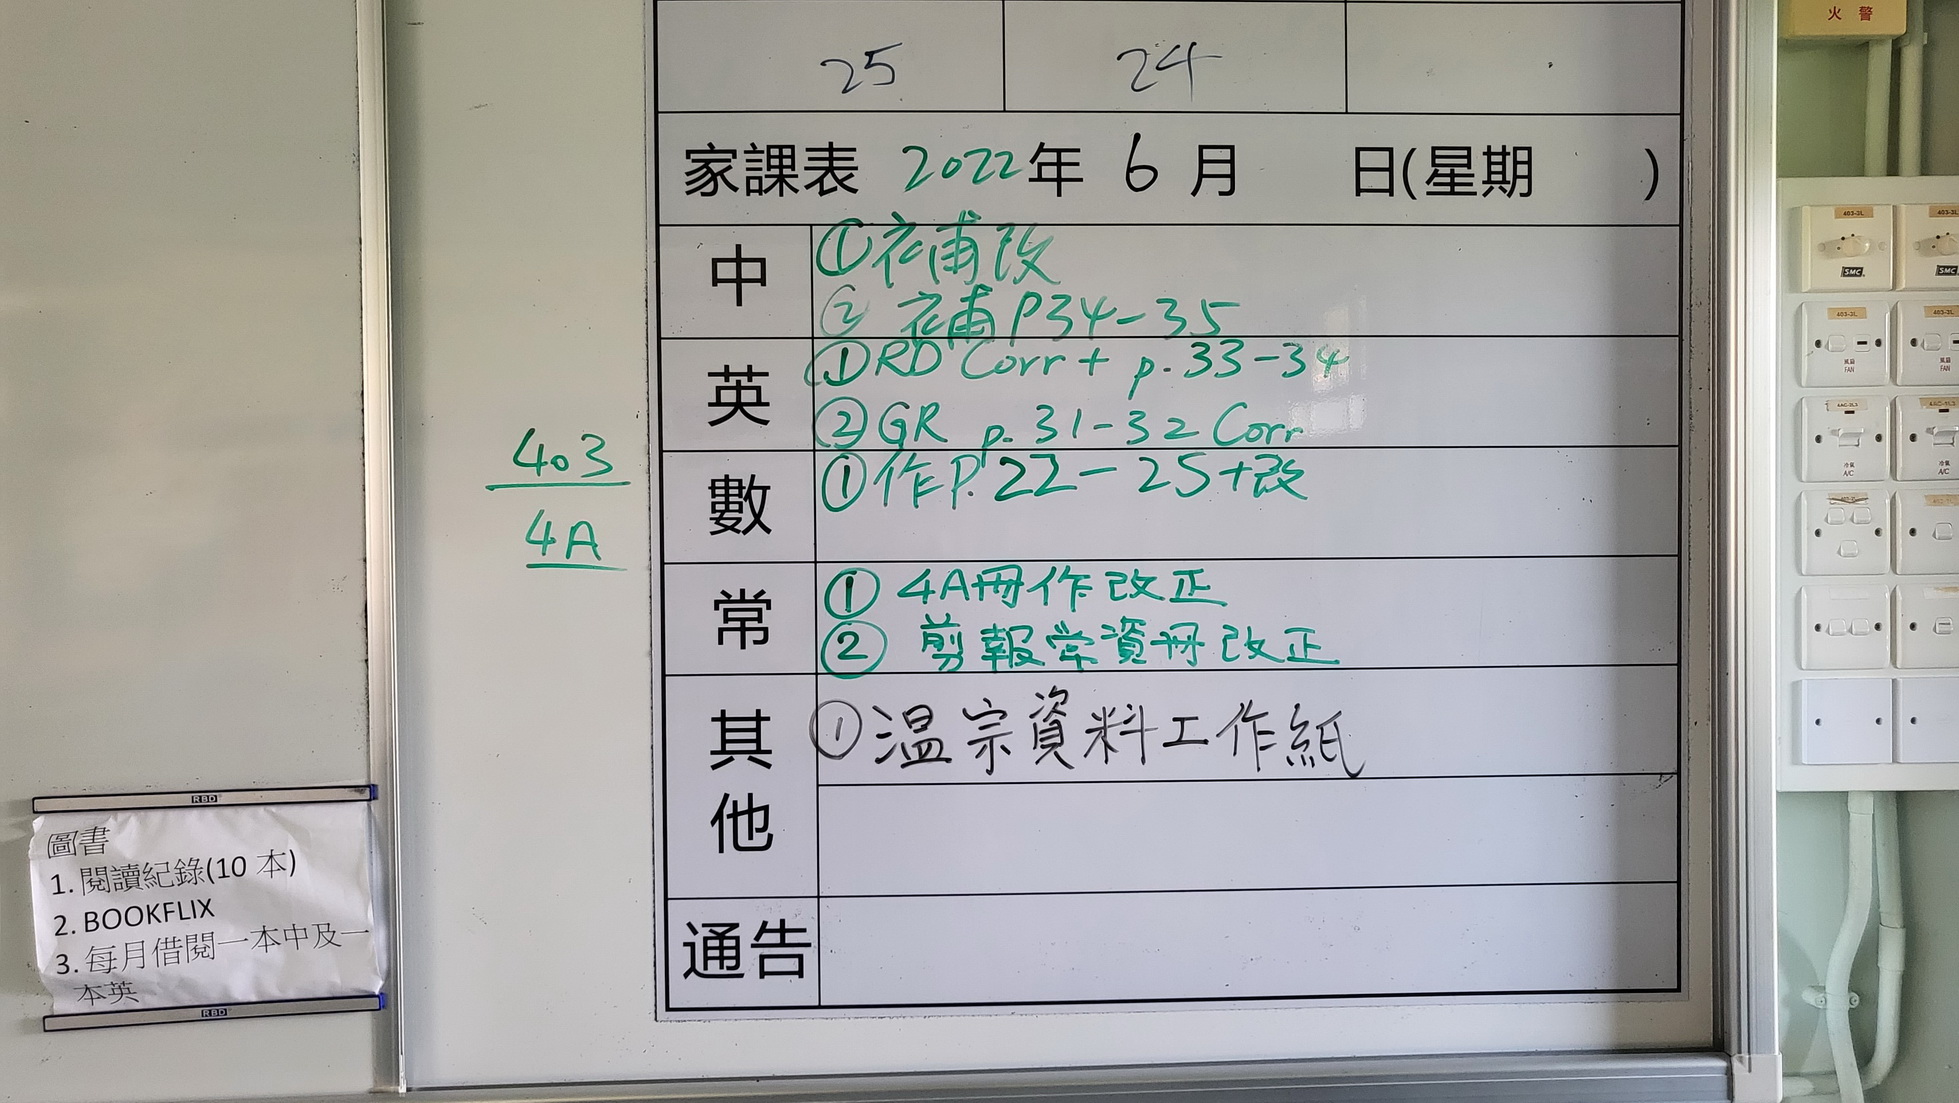 火警
25 24
家課表 2022年 6月 日(星期 )
中
①補改
②補P34-35
英
①RD Corr + p.33-34
②GR p.31-32 Corr
數
①作P.22-25+改
常
①4A冊作改正
②剪報常資冊改正
其他
①溫宗資料工作紙
通告
403
4A
RBD
圖書
1. 閱讀紀錄(10 本)
2. BOOKFLIX
3. 每月借閱一本中及一
本英
RBD
403-3L
403-3L
SMC
SMC
403-3L
403-3L
風扇
FAN
風扇
FAN
冷氣
A/C
冷氣
A/C